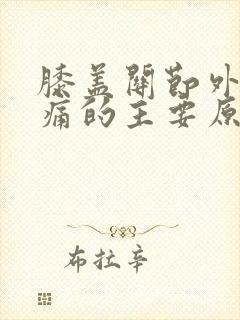 膝盖關節外
痛的主要原
布拉辛